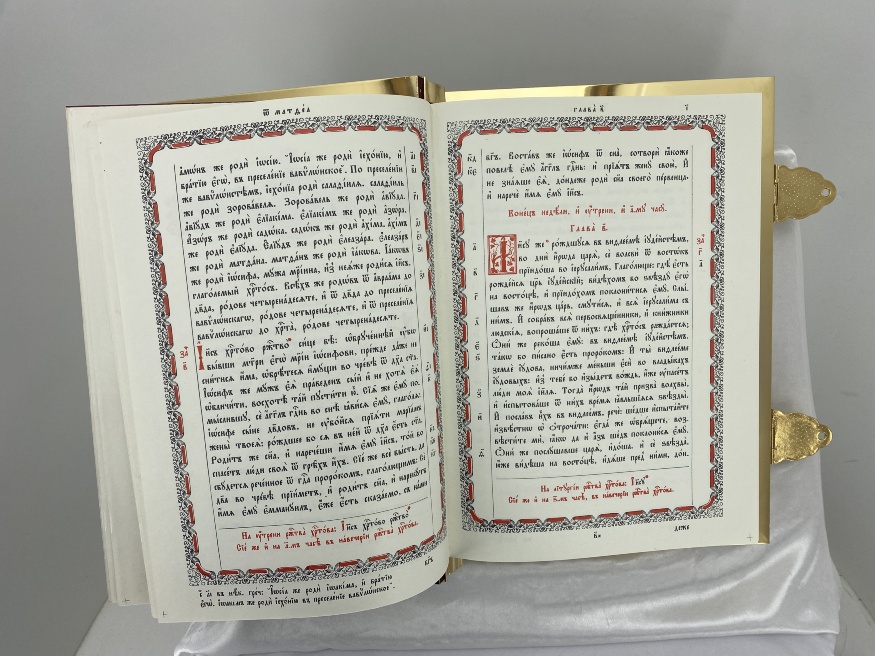 Ѿ МАТѲЕ́А
а҆мѡ́нъ же родѝ і҆ѡсі́ю. І҆ѡсі́а же родѝ і҆ехо́нїю, и҆
бра́тїю є҆гѡ̀, въ преселе́нїе вавѷлѡ́нское. По преселе́нїи
же вавѷлѡ́нстѣмъ, і҆ехо́нїа родѝ салаѳі́илѧ. салаѳі́иль
же родѝ зорова́велѧ. Зорова́вель же родѝ а҆вїꙋ́да.
а҆вїꙋ́дъ же родѝ є҆лїакі́ма. Є҆лїакі́мъ же родѝ а҆зѡ́ра.
А҆зѡ́ръ же родѝ садѡ́ка. садѡ́къ же родѝ а҆хі́ма. а҆хі́мъ
же родѝ є҆лїꙋ́да. Є҆лїꙋ́дъ же родѝ є҆леаза́ра. є҆леаза́ръ
же родѝ матѳа́на. матѳа́нъ же родѝ і҆а́кѡва. І҆а́кѡвъ
же родѝ і҆ѡ́сифа, мꙋ́жа мр҃і́ина, и҆з̾ неѧ́же роди́сѧ і҆и҃съ,
глаго́лемый хрⷭ҇то́съ. Всѣ́хъ же родѡ́въ ѿ а҆враа́ма до
дв҃да, ро́дове четырена́десѧте, и҆ ѿ дв҃да до преселе́нїѧ
вавѷлѡ́нскагѡ, ро́дове четырена́десѧте, и҆ ѿ преселе́нїѧ
вавѷлѡ́нскагѡ до хрⷭ҇та̀, ро́дове четырена́десѧте.
І҆и҃съ хрⷭ҇то́во рⷤтво̀ си́це бѣ̀: ѡ҆брꙋче́ннѣй ᲂу҆́бѡ
бы́вши мт҃ри є҆гѡ̀ мр҃і́и і҆ѡ́сифови, пре́жде да́же не
сни́тисѧ и҆́ма, ѡ҆брѣ́тесѧ и҆мꙋ́щи во чре́вѣ ѿ дх҃а ст҃а.
І҆ѡ́сифъ же мꙋ́жъ є҆ѧ̀ пра́веденъ сы́й и҆ не хотѧ̀ є҆ѧ̀
ѡ҆бличи́ти, восхотѣ̀ та́й пꙋсти́ти ю҆̀. Сїѧ̑ же є҆мꙋ̀ по-
мы́слившꙋ, сѐ а҆́гг҃лъ гдⷭ҇нь во снѣ̀ ꙗ҆ви́сѧ є҆мꙋ̀, глаго́лѧ:
і҆ѡ́сифе сы́не дв҃довъ, не ᲂу҆бо́йсѧ прїѧ́ти марїа́мъ
жены̀ твоеѧ̀: ро́ждшеебосѧ въ не́й ѿ дх҃а є҆́сть ст҃а.
Роди́тъ же сн҃а, и҆ нарече́ши и҆́мѧ є҆мꙋ̀ і҆и҃съ, то́й бо
спасе́тъ лю́ди своѧ̑ ѿ грѣ̑хъ и҆́хъ. Сїе́ же всѐ бы́сть, да
сбꙋ́детсѧ рече́нное ѿ гдⷭ҇а прⷪ҇ро́комъ, глаго́лющимъ: сѐ
дв҃а во чре́вѣ прїи́метъ, и҆ роди́тъ сн҃а, и҆ нарекꙋ́тъ
и҆́мѧ є҆мꙋ̀ є҆мманꙋ́илъ, є҆́же є҆́сть сказа́емо, съ на́ми
На ᲂу҆́трени рⷤтва̀ хрⷭ҇то́ва: І҆и҃съ хрⷭ҇то́во рⷤтво̀
Сїѐ же и҆ на а҃-мъ часѣ̀ въ навече́рїи рⷤтва̀ хрⷭ҇то́ва.
бг҃ъ
въ нѣ́к. греч: І҆ѡсі́а же родѝ і҆ѡакі́ма, и҆ бра́тїю
є҆гѡ̀, і҆ѡакі́мъ же родѝ і҆ехо́нїю въ преселе́нїе вавѷлѡ́нское.
ГЛАВА̀
бг҃ъ. Воста́въ же і҆ѡ́сифъ ѿ сна̀, сотворѝ ꙗ҆́коже
повелѣ̀ є҆мꙋ̀ а҆́гг҃лъ гдⷭ҇нь: и҆ прїѧ́тъ женꙋ̀ свою̀, И҆
не зна́ѧше є҆ѧ̀, до́ндеже родѝ сн҃а своего̀ пе́рвенца,
и҆ наречѐ и҆́мѧ є҆мꙋ̀ і҆и҃съ.
Коне́цъ недѣ́ли, и҆ ᲂу҆́трени, и҆ а҃-мꙋ часꙋ̀.
Глава̀ в҃.
І҆и҃сꙋ же ро́ждшꙋсѧ въ виѳлее́мѣ і҆ꙋде́йстѣмъ,
во дни̑ и҆́рѡда царѧ̀, сѐ волсвѝ ѿ востѡ́къ
прїидо́ша во і҆ерⷭ҇ли́мъ, Глаго́люще: гдѣ̀ є҆́сть
рожде́йсѧ цр҃ь і҆ꙋде́йскїй; ви́дѣхомъ бо ѕвѣздꙋ̀ є҆гѡ̀
на восто́цѣ, и҆ прїидо́хомъ поклони́тисѧ є҆мꙋ̀. Слы́-
шавъ же и҆́рѡдъ ца́рь, смꙋти́сѧ, и҆ всѧ̀ і҆ерⷭ҇ли́ма съ
ни́мъ. И҆ собра́въ всѧ̑ первосщ҃е́нники, и҆ кни́жники
людскі́ѧ, вопроша́ше ѿ ни́хъ: гдѣ̀ хрⷭ҇то́съ ражда́етсѧ;
Ѻ҆ни́ же реко́ша є҆мꙋ̀: въ виѳлее́мѣ і҆ꙋде́йстѣмъ.
та́кѡ бо пи́сано є҆́сть прⷪ҇ро́комъ: И҆ ты̀ виѳлее́ме
землѐ і҆ꙋ́дова, ничи́мже ме́ньши є҆сѝ во влады́кахъ
і҆ꙋ́довыхъ: и҆з̾ тебє́ бо и҆зы́детъ во́ждь, и҆́же ᲂу҆пасе́тъ
лю́ди моѧ̑ і҆и҃лѧ. Тогда̀ и҆́рѡдъ та́й призва̀ волхвы̀,
и҆ и҆спы́товаше ѿ ни́хъ вре́мѧ ꙗ҆́вльшїѧсѧ ѕвѣзды̀.
И҆ посла́въ и҆̀хъ въ виѳлее́мъ, речѐ: ше́дше и҆спыта́йте
и҆звѣ́стнѡ ѡ҆ ѻ҆троча́ти: є҆гда́ же ѡ҆брѧ́щете, воз-
вѣсти́те мѝ, ꙗ҆́кѡ да и҆ а҆́зъ ше́дъ поклоню́сѧ є҆мꙋ̀.
Ѻ҆ни́ же послꙋ́шавше царѧ̀, и҆до́ша. и҆ сѐ ѕвѣзда̀,
ю҆́же ви́дѣша на восто́цѣ, и҆дѧ́ше пред̾ ни́ми, до́н-
На лїтꙋргі́и рⷤтва̀ хрⷭ҇то́ва: І҆и҃сꙋ
Сїѐ же и҆ на а҃-мъ часѣ̀, въ навече́рїи рⷤтва̀ хрⷭ҇то́ва.
деже